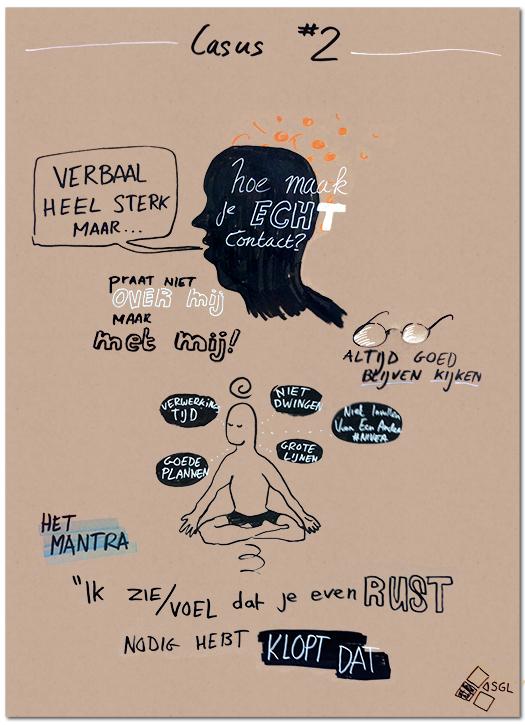 Casus #2
VERBAAL
HEEL STERK
MAAR...
hoe maak
je ECHT
Contact?
praat NIET
OVER mij
MAAR
met mij!
ALTIJD GOED
BLIJVEN KIJKEN
VERWERKING
TIJD
NIET
DWINGEN
Niet Invullen
Van Een Ander
#NIVEA
GOEDE
PLANNEN
GROTE
LIJNEN
HET
MANTRA
"Ik ZIE/VOEL dat je even RUST
NODIG HEBT KLOPT DAT
OSGL